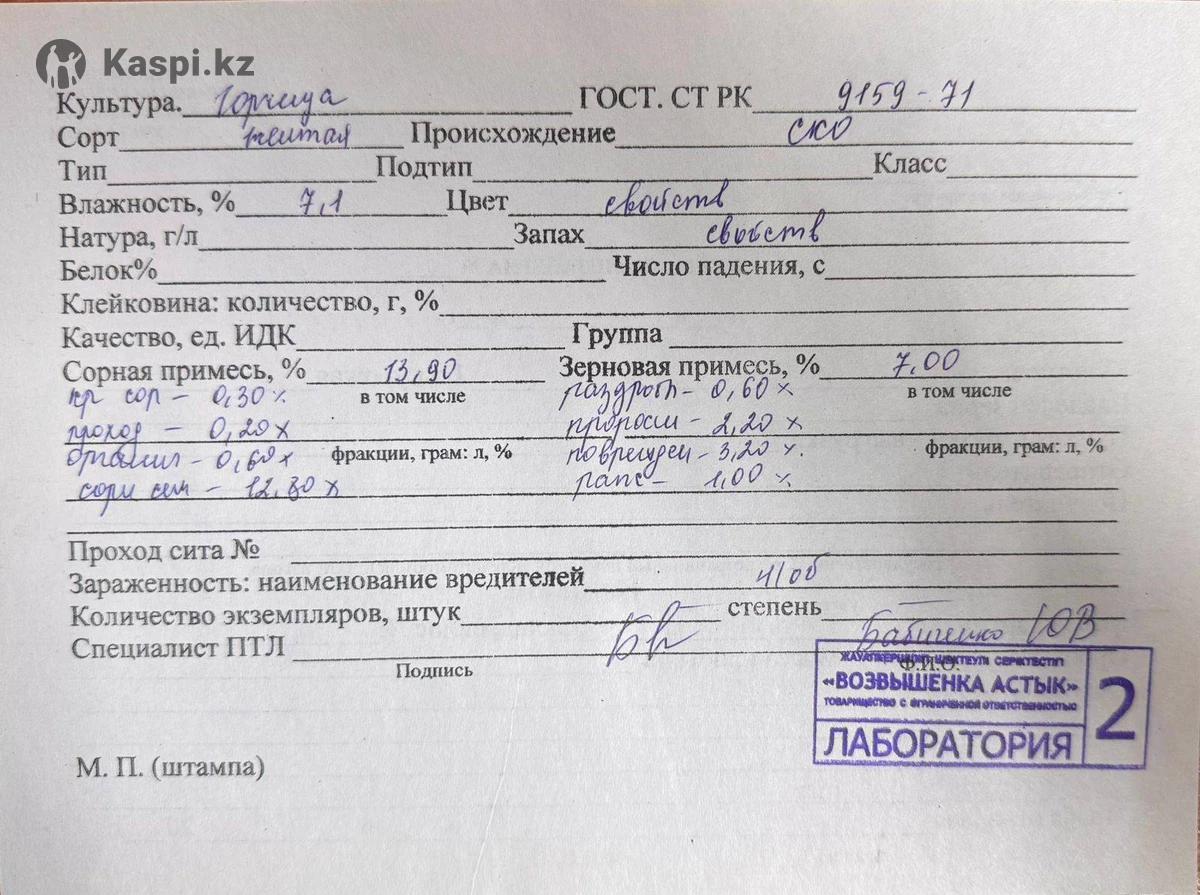 Kaspi.kz
Культура. Горчица ГОСТ. СТ РК 9159-71
Сорт желтая Происхождение СКО
Тип Подтип Класс
Влажность, % 7,1 Цвет свойств
Натура, г/л Запах свойств
Белок% Число падения, с
Клейковина: количество, г, %
Качество, ед. ИДК Группа
Сорная примесь, % 13,90 Зерновая примесь, % 7.00
пр сор - 0,30% в том числе раздробл - 0,60% в том числе
проход - 0,20% проросш - 2,20%
0,60% фракции, грам: л, % поврежден - 3,20% фракции, грам: л, %
сорн сем - 12,80% рапс - 1,00%
Проход сита №
Зараженность: наименование вредителей н/об
Количество экземпляров, штук — степень —
Специалист ПТЛ Бабиченко ЮВ
Подпись Ф.И.О.
ЖАУАПКЕРШІЛІГІ ШЕКТЕУЛІ СЕРІКТЕСТІГІ
«ВОЗВЫШЕНКА АСТЫК»
ТОВАРИЩЕСТВО С ОГРАНИЧЕННОЙ ОТВЕТСТВЕННОСТЬЮ
ЛАБОРАТОРИЯ 2
М. П. (штампа)